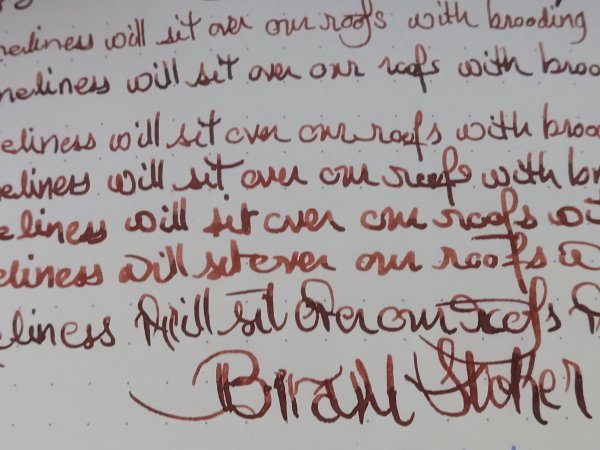 neliness will sit over our roofs with brooding
neliness will sit over our roofs with broo
eliness will sit over our roofs with broo
eliness will sit over our roofs with br
eliness will sit over our roofs wi
eliness will sit over our roofs
eliness will sit over our roofs
Bram Stoker